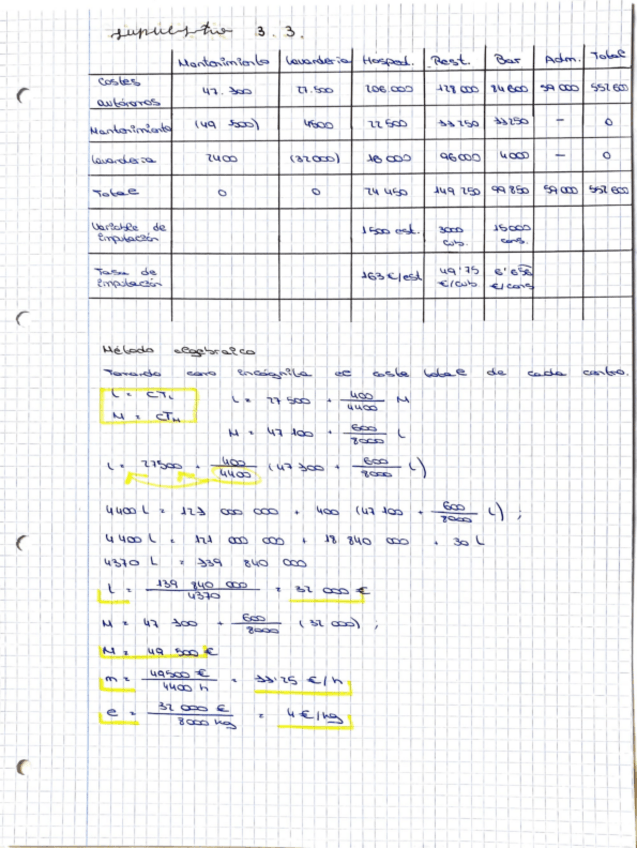 supuesto 3.3.
Mantenimiento Lavandería Hosped. Rest. Bar Adm. Total
Costes autónomos 47.300 27.500 206.000 128 000 84600 59 000 552 600
Mantenimiento (49 500) 4500 22 500 33 250 33250 - 0
Lavandería 2400 (32000) 18 000 96000 4000 - 0
Total 0 0 24 450 149 250 99 850 59 000 552 600
Variable de imputación 1500 est. 3000 cub. 15000 cons.
Tasa de imputación 163 €/est 49'75 €/cub 6'656 €/cons
Método algebraico
Tomando como incógnita el coste total de cada centro.
L = CTL L = 27 500 + 400/4400 M
M = CTM
M = 47 100 + 600/8000 L
L = 27500 + 400/4400 (47 300 + 600/8000 L)
4400 L = 121 000 000 + 400 (47 100 + 600/8000 L) ;
4400 L = 121 000 000 + 18 840 000 + 30 L
4370 L = 139 840 000
L = 139 840 000/4370 = 32 000 €
M = 47 300 + 600/8000 (32 000) ;
M = 49 500 €
m = 49500 €/4400 h = 11'25 €/h
e = 32 000 €/8000 kg = 4 €/kg